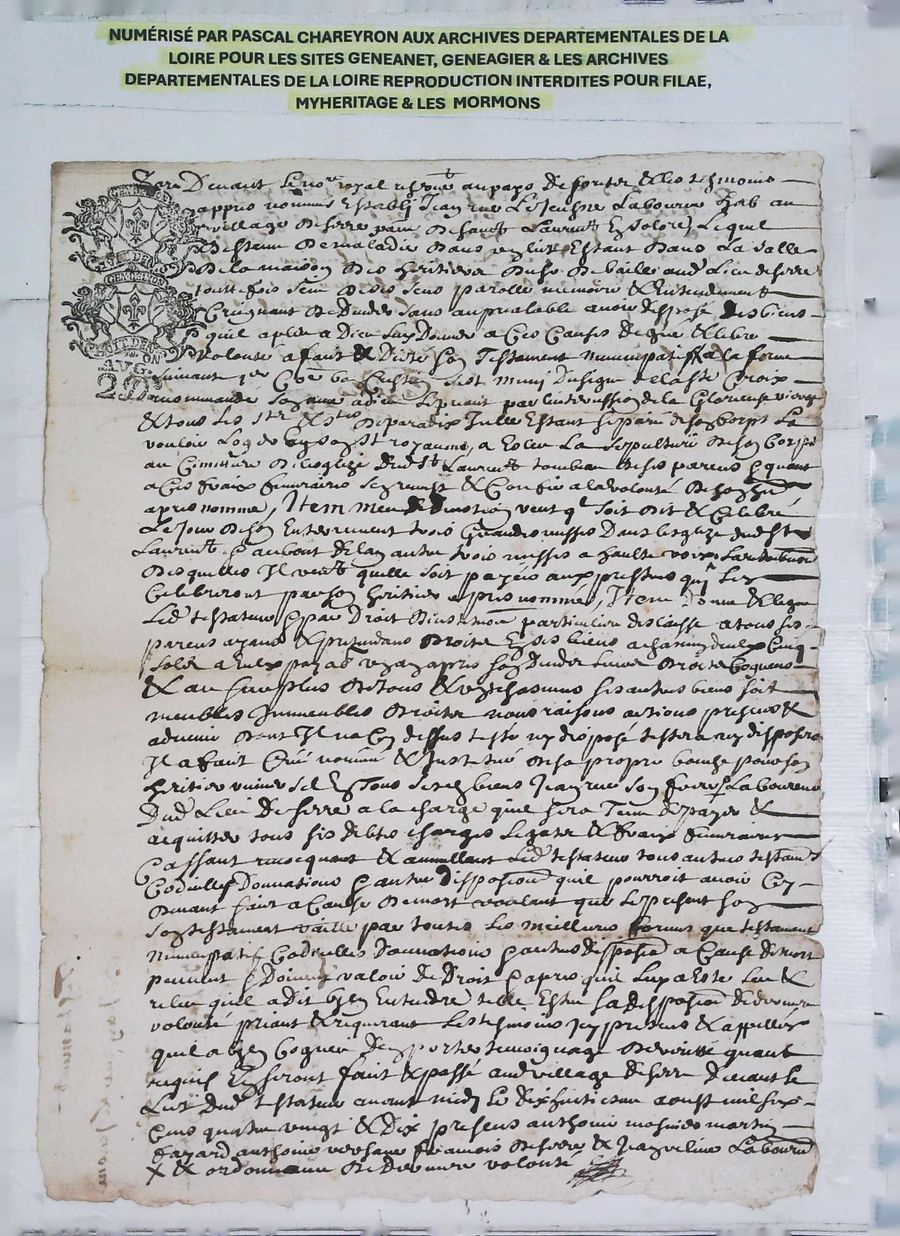 NUMÉRISÉ PAR PASCAL CHAREYRON AUX ARCHIVES DEPARTEMENTALES DE LA
LOIRE POUR LES SITES GENEANET, GENEAGIER & LES ARCHIVES
DEPARTEMENTALES DE LA LOIRE REPRODUCTION INTERDITES POUR FILAE,
MYHERITAGE & LES MORMONS
Par Devant le no.re royal au pays de forest & les tesmoins
apprés nommés Establi Jean le Jeusne Laboureur hab au
village de serre de Sainct Laurens En Solore, Lequel
Destenu De maladie Dans un lict Estant Dans La salle
De la maison Des heritiers Dud Lieu de serre
touttefois sein De ses sens parolle memoire & Entendement
Craignant De Deceder sans au prealable avoir disposé des biens
quil a pleu a Dieu Luy Donner a Ces Causes De gré & libre
volonté a fait & Dicté son Testament nuncupatif a la forme
suivant Chrestien sest muni du signe de la ste Croix
recommandé son ame a dieu Le priant par lintercession de la Glorieuse vierge
& tous les sts & stes De paradis Icelle Estant separée de son Corps La
vouloir Loger En son st royaume, a Esleu La sepulture De son Corps
au Cimetiere De Lesglize dud st Laurens tombeau De ses parens & quant
a Ces fraix funeraires sen remet & Confie a la volonté De son her
apres nommé, Item meu De devotion veut q soit Dit & Celebré
Le Jour De son Enterrement trois Grandes messes Dans lesglize dud st
Laurens & au bout de lan autre trois messes a haulte voix
Desquelles Il veut quelle soit payées aux prestres qui Les
Celebreront par son heritier apres nommé, Item Donne & legue
Led testateur & par Droit Dinstitution particuliere delaisse a tous ses
parens ayans & pretendans Droits En ses biens a chacun deulx Cinq
sols a Eulx payab un an apres son Deceder
& au surplus De tous & uns chascuns ses autres biens soit
meubles Immeubles Droits noms raisons actions presens &
advenir Dont Il na Cy dessus testé ny disposé testera ny disposera
Il a fait Creé nommé & Institué De sa propre bouche pour son
heritier universel En Tous sesd biens Jean son frere Laboureur
Dud Lieu De serre a la charge quil sera Tenu De payer &
acquitter tous ses debtes charges Legats & fraix funeraires
Cassant revocquant & annullant Led testateur tous autres testam
Codicilles Donnations & autre Disposition quil pourroit avoir Cy
Devant fait a Cause De mort voulant que Le present son
testament vaille par toutes Les meilleures formes que testament
nuncupatif Codicilles Donnations & autres disposition a Cause de mort
peuvent & Doivent valoir De Droit & apres quil Luy a Este Leu &
releu quil a dit bien Entendre telle Estre sa disposition De derniere
volonté priant & requerant Les tesmoins Icy presens & appellés
quil a bien Cogneu Den porter temoignage De verité quant
requis En seront fait & passé aud village de serre Devant le
Lict Dud testateur avant midy le dix huictiesme aoust mil six
Cens quatre vingt & Dix presens anthoine martin
anthoine francois De serre & Laboureur
X & ordonnance De Derniere volonté
AVG.